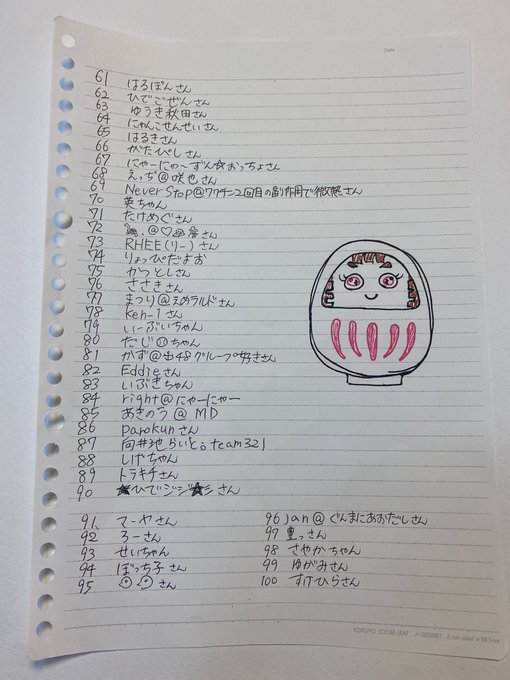 Date
61 はるぽんさん
62 ひでごぜんさん
63 ゆうき秋田さん
64 にゃんこせんせいさん
65 はるきさん
66 がたぴしさん
67 にゃーにゃ〜ずん☆おっちょさん
68 えっぢ@咲也さん
69 Never Stop@ワクチン2回目の副作用で微熱さん
70 英ちゃん
71 たけめぐさん
72 @♡さん
73 RHEE(りー)さん
74 りょっぴだよお
75 かつとしさん
76 ささきさん
77 まつり@エメラルドさん
78 Ken-1さん
79 いーぶいちゃん
80 だじ ちゃん
81 かず@出48グループ好きさん
82 Eddieさん
83 いぶきちゃん
84 right@にゃーにゃー
85 あきのう@MD
86 parokunさん
87 向井地らいと。team321
88 しげちゃん
89 トラキチさん
90 ★ひでジジ★彡さん
91 マーヤさん
92 ろーさん
93 せいちゃん
94 ぼっち子さん
95 さん
96 jan@ぐんまにあおだしさん
97 豊っさん
98 さやかちゃん
99 ゆがみさん
100 すけひらさん
KOKUYO LOOSE-LEAF ノ-G836BT 6 mm ruled × 36 lines